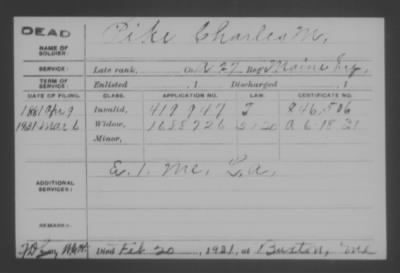 DEAD
NAME OF SOLDIER: Pike Charles M.
SERVICE: Late rank, Co. K 27 Reg't Maine Inf,
TERM OF SERVICE: Enlisted , 1 Discharged , 1
DATE OF FILING. CLASS. APPLICATION NO. LAW. CERTIFICATE NO.
1881 Apr 9 Invalid, 419,947 246,506
1921 Mar 6 Widow, 1688726 A 6-18-21
Minor,
ADDITIONAL SERVICES: E, 1, Me. L.a.
REMARKS:
Died Feb 20, 1921, at Buxton, Me